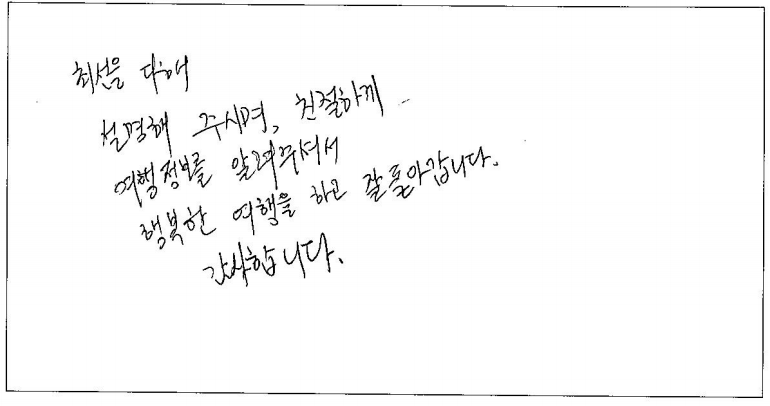 최선을 다해
설명해 주시며, 친절하게
여행정보를 알려주셔서
행복한 여행을 하고 잘돌아갑니다.
감사합니다.